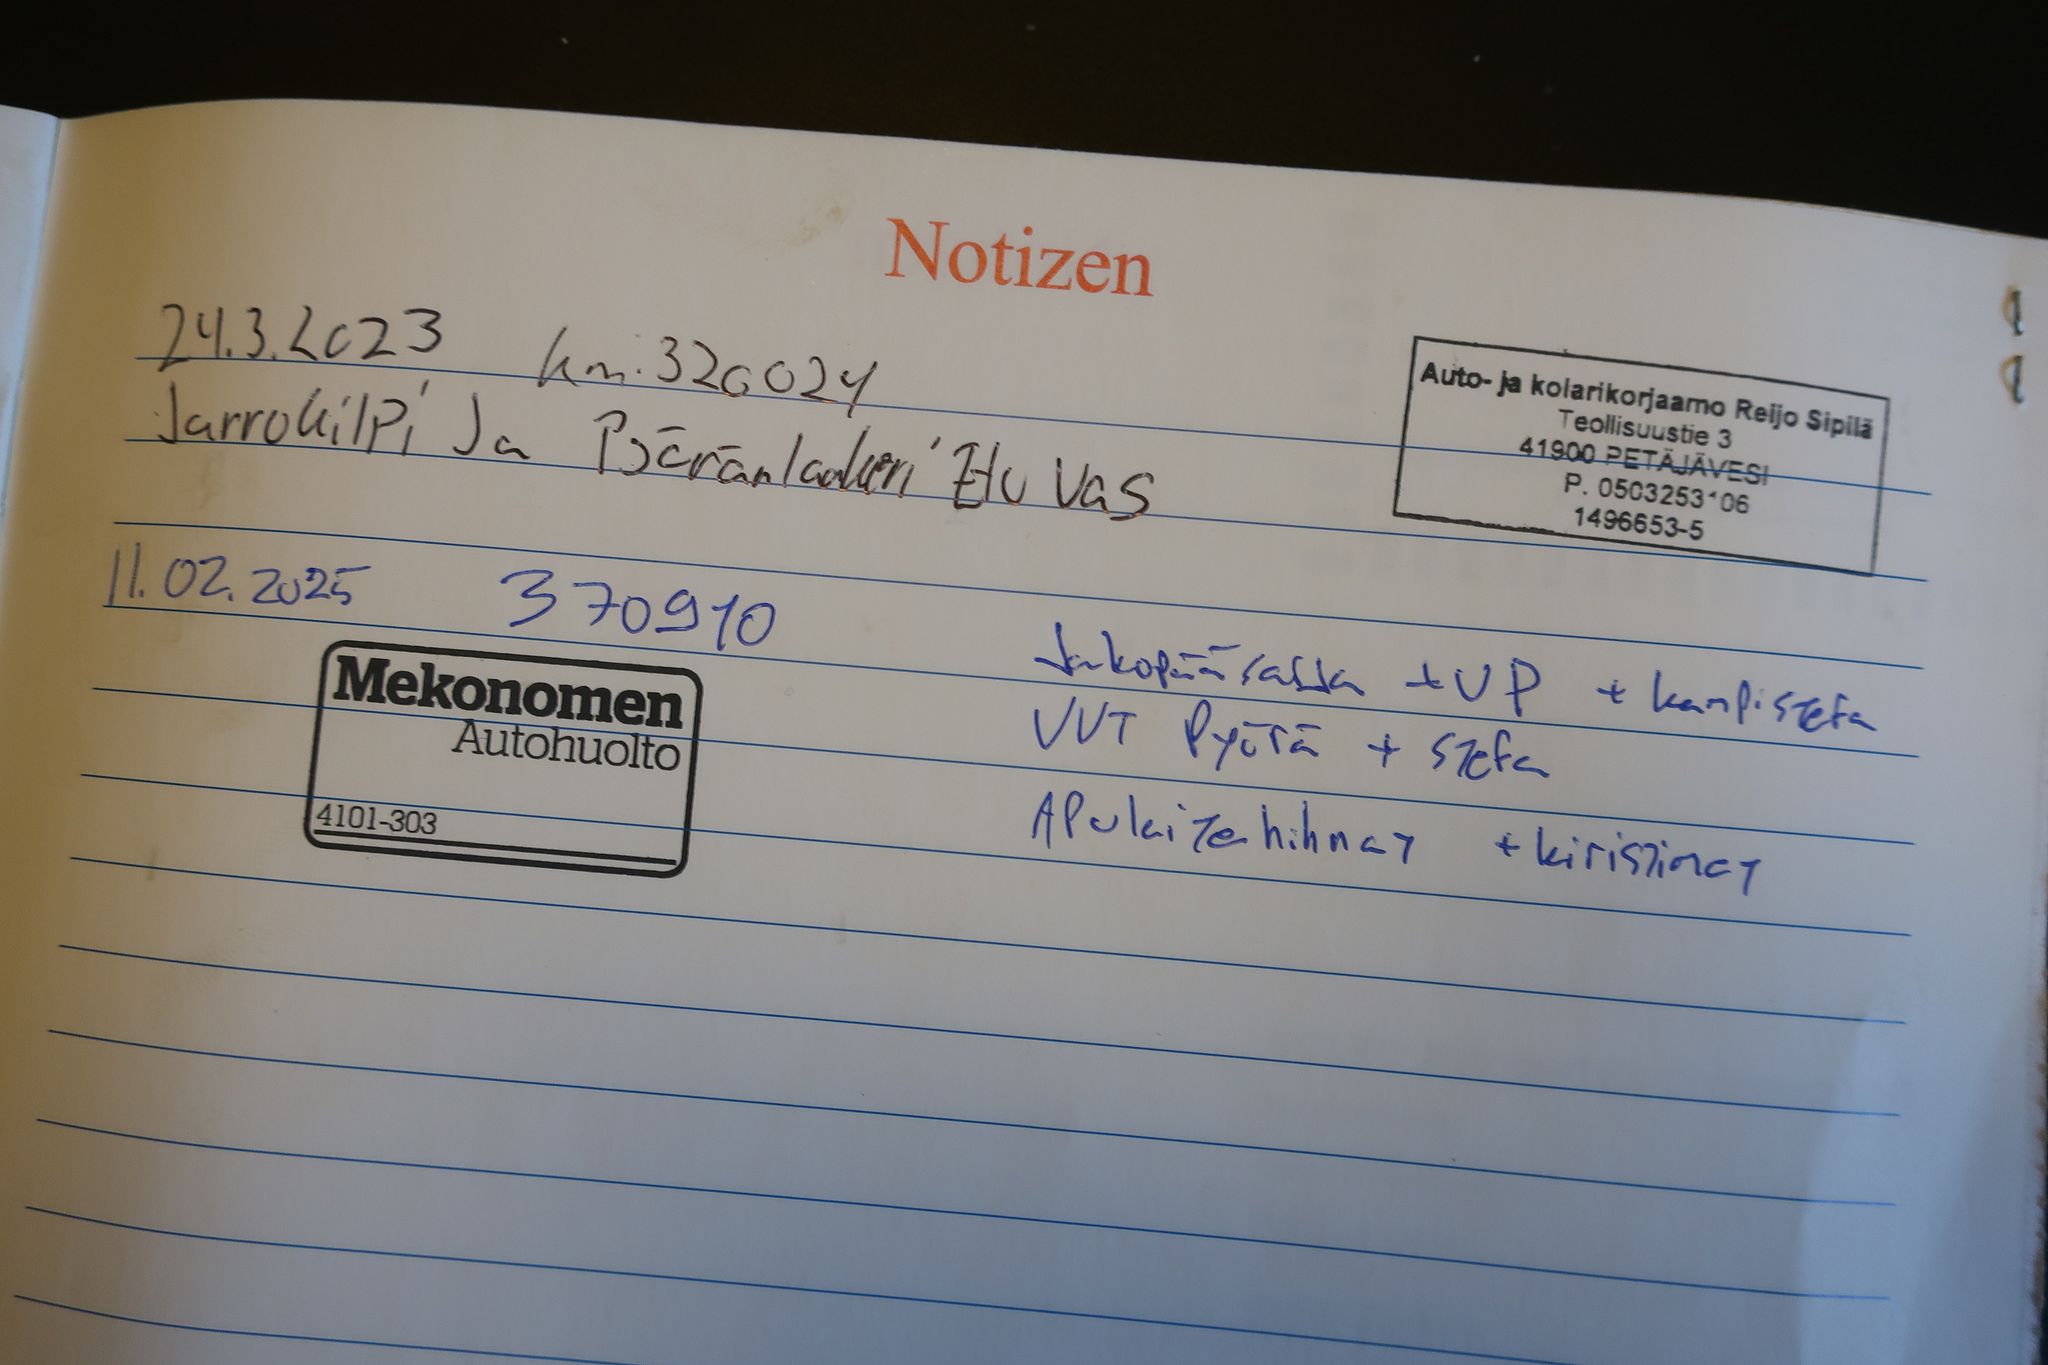 Notizen
24.3.2023 km:320024
Jarrokilpi Ja Pyöränlaakeri Etu Vas
Auto- ja kolarikorjaamo Reijo Sipilä
Teollisuustie 3
41900 PETÄJÄVESI
P. 0503253106
1496653-5
11.02.2025 370910
Mekonomen
Autohuolto
4101-303
Jakopääsarja + VP + kampistefa
VVT Pyörä + stefa
APulaitehihnat + kiristimet